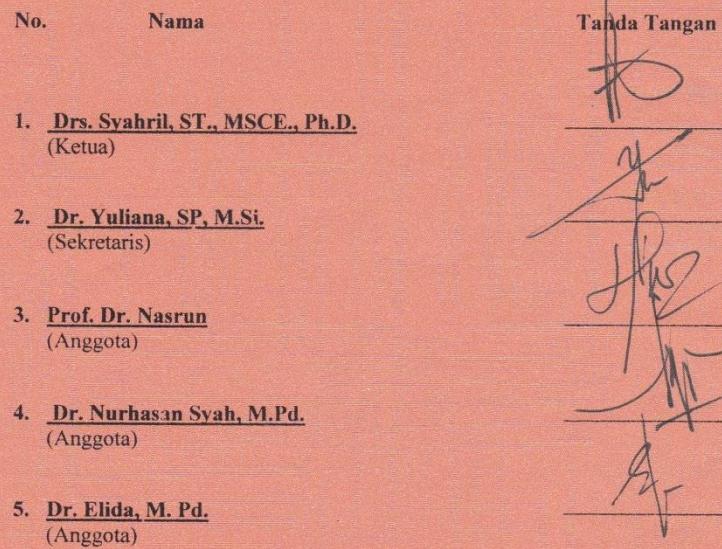 No. Nama Tanda Tangan
1. Drs. Syahril, ST., MSCE., Ph.D.
(Ketua)
2. Dr. Yuliana, SP, M.Si.
(Sekretaris)
3. Prof. Dr. Nasrun
(Anggota)
4. Dr. Nurhasan Syah, M.Pd.
(Anggota)
5. Dr. Elida, M. Pd.
(Anggota)